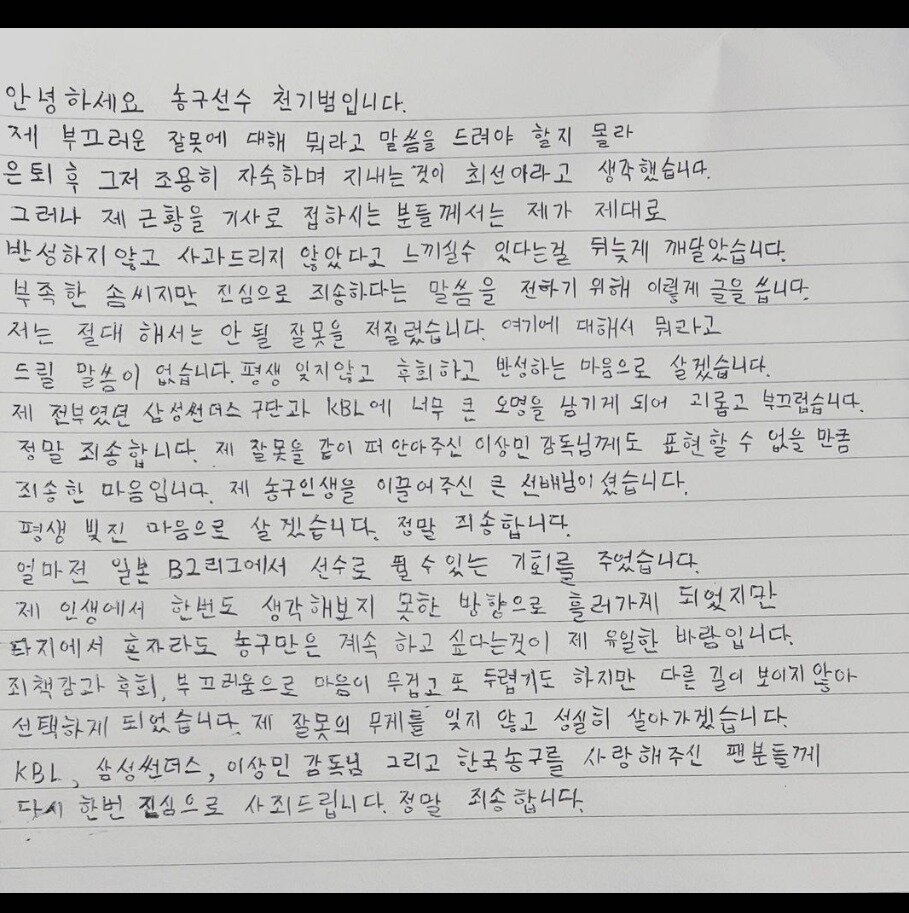 안녕하세요 농구선수 천기범입니다.
제 부끄러운 잘못에 대해 뭐라고 말씀을 드려야 할지 몰라
은퇴 후 그저 조용히 자숙하며 지내는 것이 최선이라고 생각했습니다.
그러나 제 근황을 기사로 접하시는 분들께서는 제가 제대로
반성하지 않고 사과드리지 않았다고 느끼실수 있다는걸 뒤늦게 깨달았습니다.
부족한 솜씨지만 진심으로 죄송하다는 말씀을 전하기 위해 이렇게 글을 씁니다.
저는 절대 해서는 안 될 잘못을 저질렀습니다. 여기에 대해서 뭐라고
드릴 말씀이 없습니다. 평생 잊지않고 후회하고 반성하는 마음으로 살겠습니다.
제 전부였던 삼성썬더스 구단과 KBL에 너무 큰 오명을 남기게 되어 괴롭고 부끄럽습니다.
정말 죄송합니다. 제 잘못을 같이 떠 안아주신 이상민 감독님께도 표현할 수 없을 만큼
죄송한 마음입니다. 제 농구인생을 이끌어주신 큰 선배님이셨습니다.
평생 빚진 마음으로 살겠습니다. 정말 죄송합니다.
얼마전 일본 B2리그에서 선수로 뛸 수 있는 기회를 주었습니다.
제 인생에서 한번도 생각해보지 못한 방향으로 흘러가게 되었지만
타지에서 혼자라도 농구만은 계속 하고 싶다는것이 제 유일한 바람입니다.
죄책감과 후회, 부끄러움으로 마음이 무겁고 또 두렵기도 하지만 다른 길이 보이지 않아
선택하게 되었습니다. 제 잘못의 무게를 잊지 않고 성실히 살아가겠습니다.
KBL, 삼성썬더스, 이상민 감독님 그리고 한국농구를 사랑해주신 팬분들께
다시 한번 진심으로 사죄드립니다. 정말 죄송합니다.